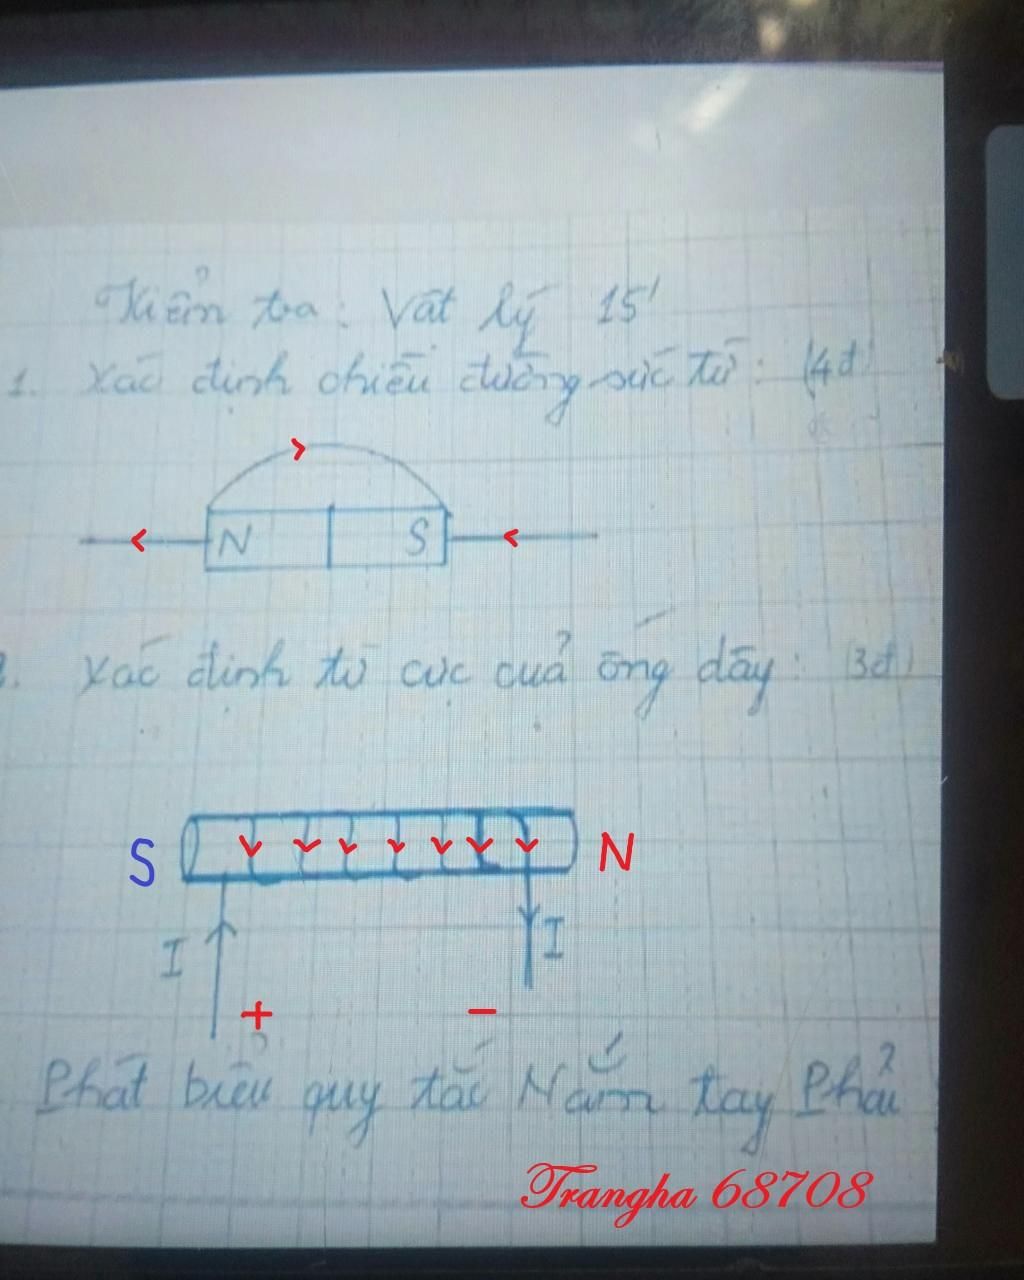 Kiểm tra: Vật lý 15'
1. Xác định chiều đường sức từ: (4đ)
N S
2. Xác định từ cực của ống dây: (3đ)
S N
I I
+ −
Phát biểu quy tắc Nắm tay Phải
Trangha 68708